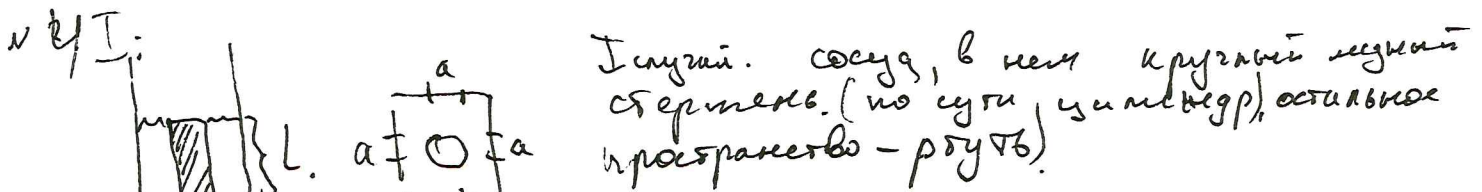 I.
I случай. сосуд, в нем круглый медный
стержень. (по сути цилиндр), остальное
пространство – ртуть)
a
a
a
L.